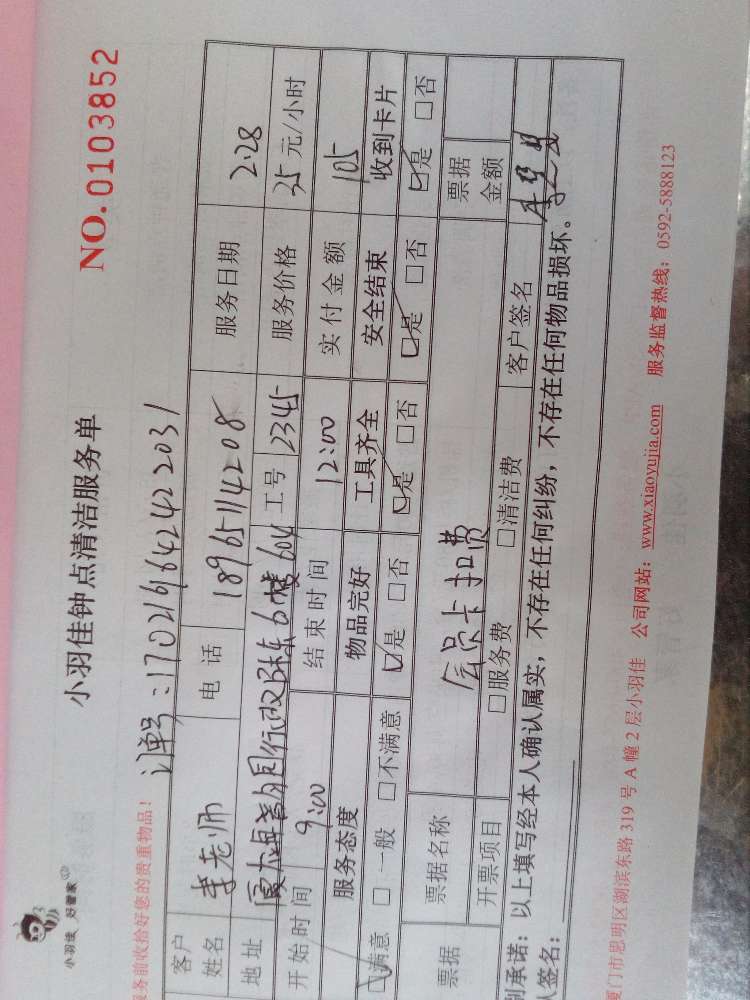 小羽佳 好管家
小羽佳钟点清洁服务单
NO.0103852
务前收拾好您的贵重物品！
订单号：1702191642422031
客户姓名 李老师 电话 18965114208 服务日期 2.28
地址 6楼604 工号 2345 服务价格 35元/小时
开始时间 9:00 结束时间 12:00 实付金额 105
服务态度 物品完好 工具齐全 安全结束 收到卡片
☑满意 □一般 □不满意 ☑是 □否 ☑是 □否 ☑是 □否 ☑是 □否
票据 票据名称 会员卡扣费 票据金额
开票项目 □服务费 □清洁费 客户签名
别承诺：以上填写经本人确认属实，不存在任何纠纷，不存在任何物品损坏。
人签名：
厦门市思明区湖滨东路319号A幢2层小羽佳 公司网站：www.xiaoyujia.com 服务监督热线：0592-5888123